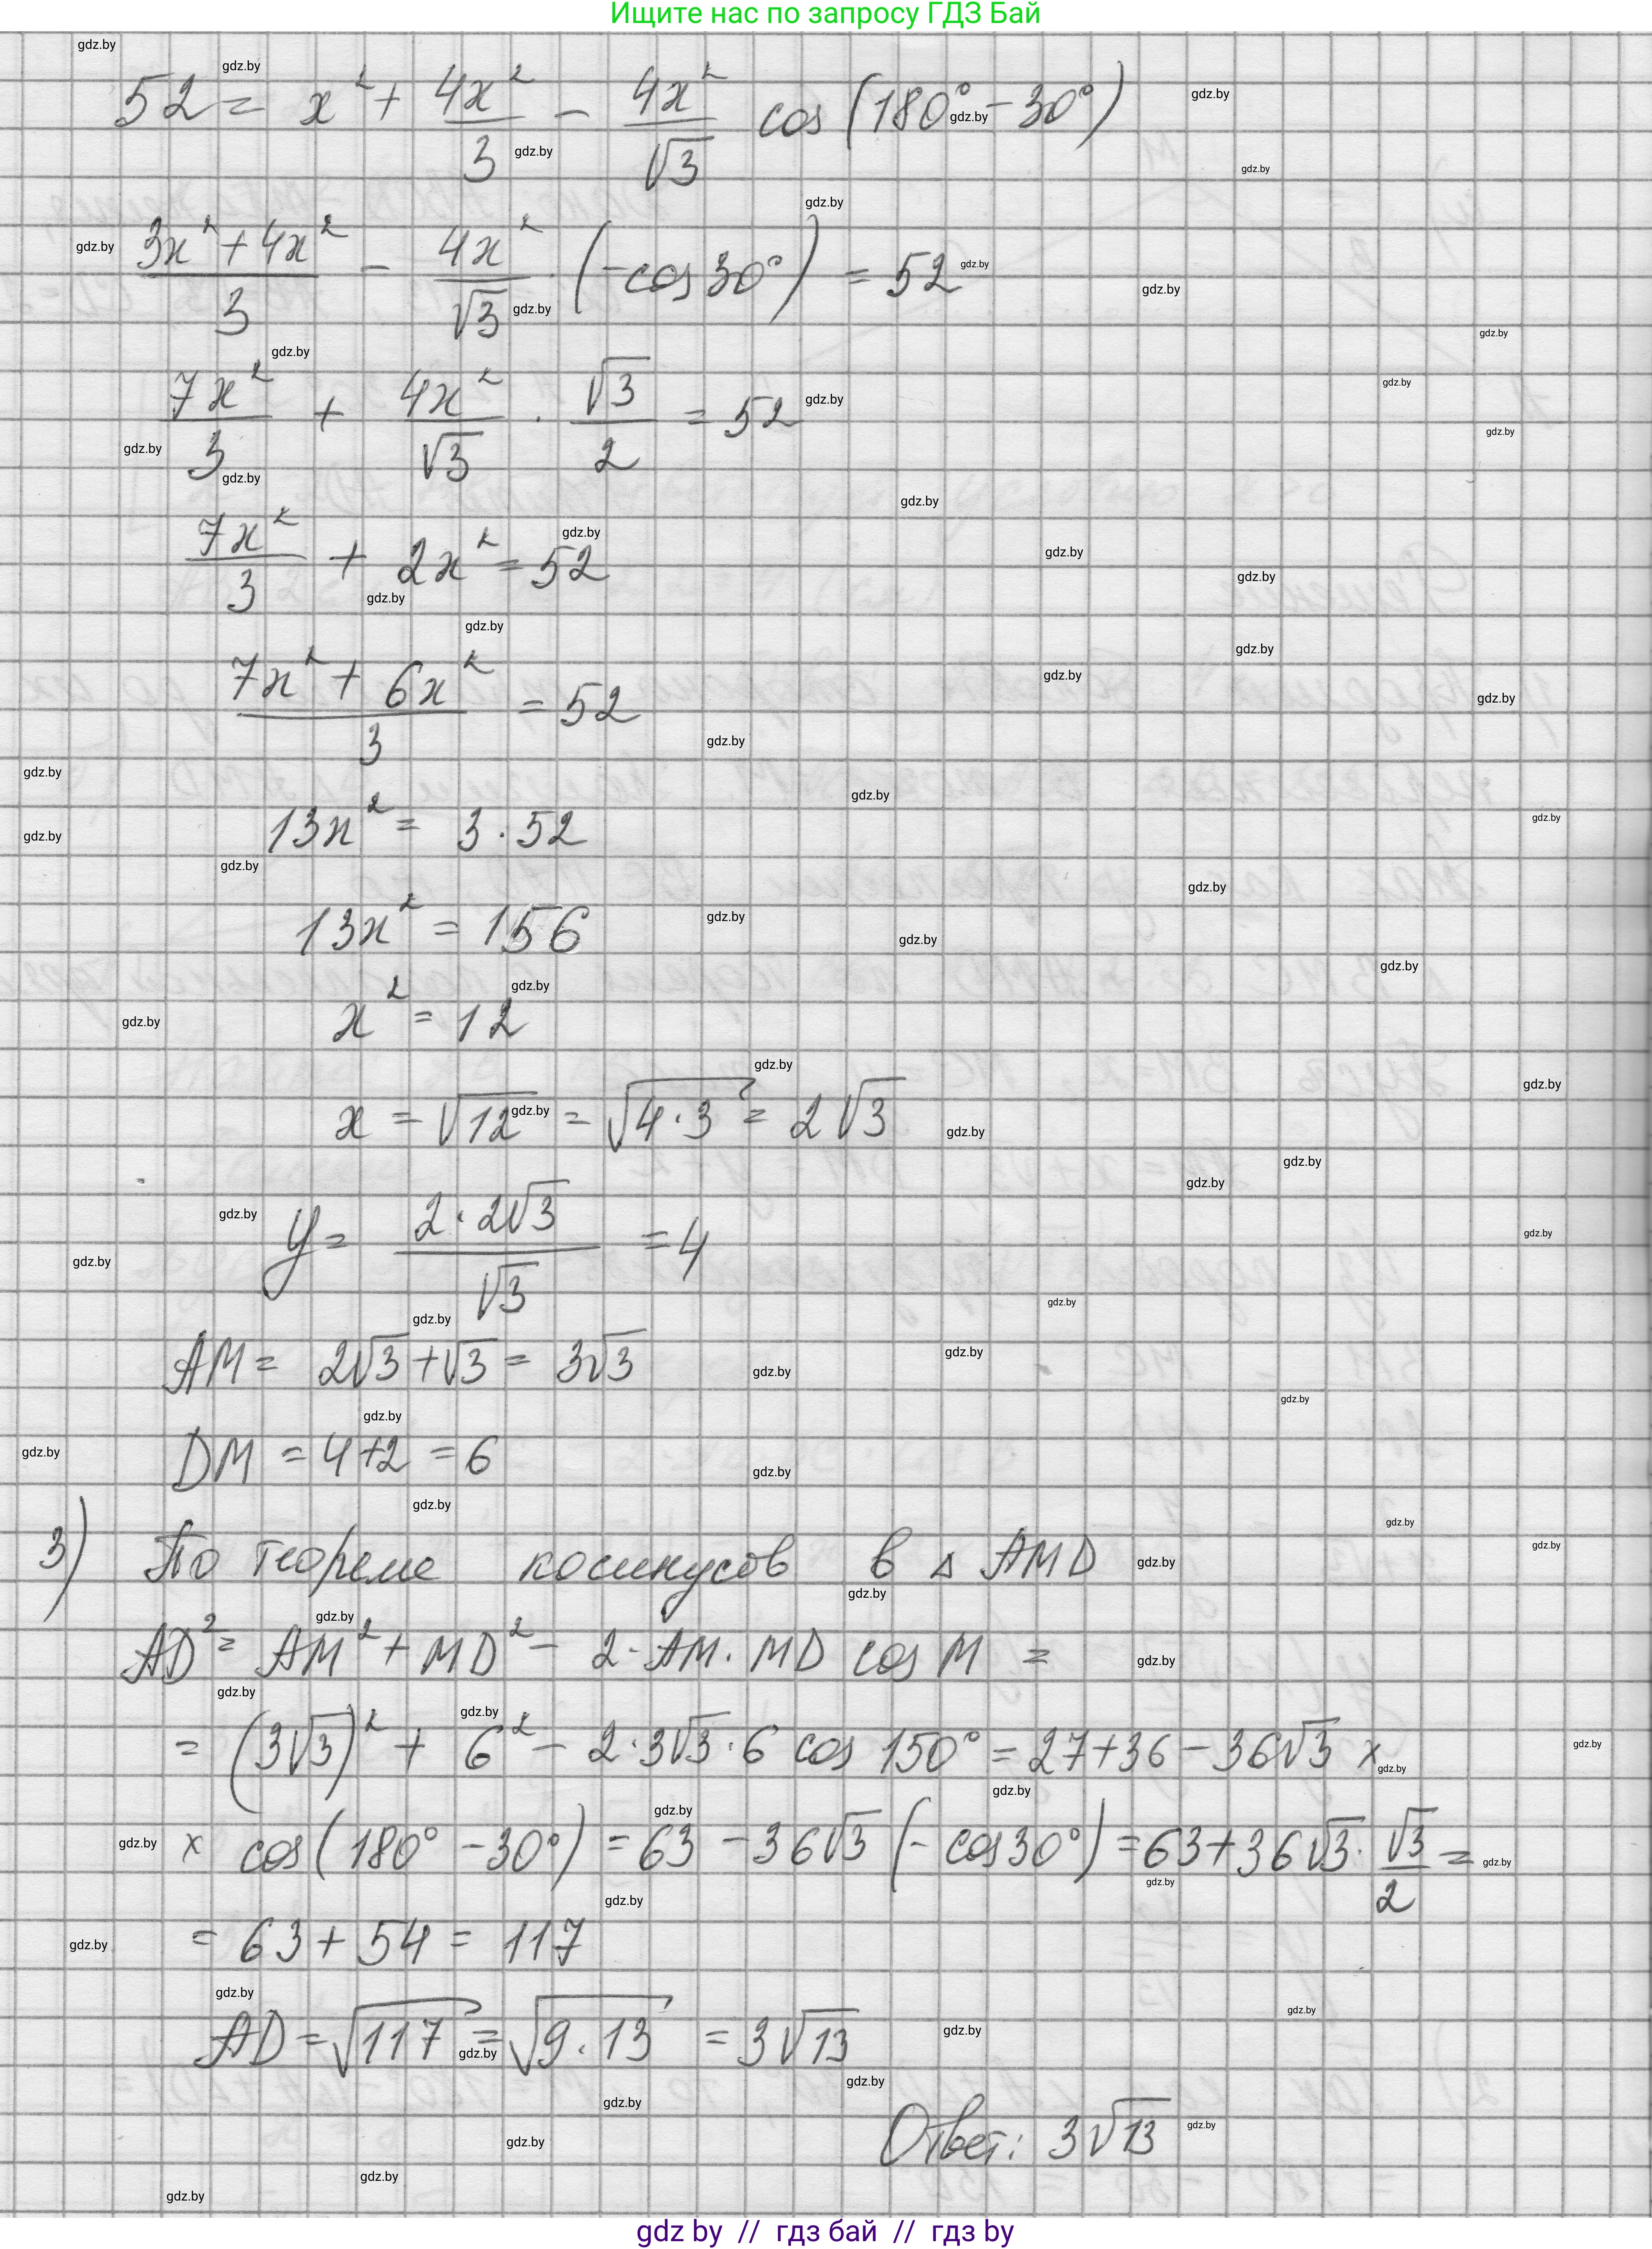 Ищите нас по запросу ГДЗ Бай
52 = x² + 4x²/3 − 4x²/√3 cos (180° − 30°)
(3x² + 4x²)/3 − 4x²/√3 · (−cos 30°) = 52
7x²/3 + 4x²/√3 · √3/2 = 52
7x²/3 + 2x² = 52
(7x² + 6x²)/3 = 52
13x² = 3 · 52
13x² = 156
x² = 12
x = √12 = √4·3 = 2√3
y = 2·2√3/√3 = 4
AM = 2√3 + √3 = 3√3
DM = 4+2 = 6
3) По теореме косинусов в △ AMD
AD² = AM² + MD² − 2·AM·MD cos M =
= (3√3)² + 6² − 2·3√3·6 cos 150° = 27+36 − 36√3 ×
× cos(180° − 30°) = 63 − 36√3 (− cos 30°) = 63+36√3 · √3/2 =
= 63 + 54 = 117
AD = √117 = √9·13 = 3√13
Ответ: 3√13
gdz by // гдз бай // гдз by